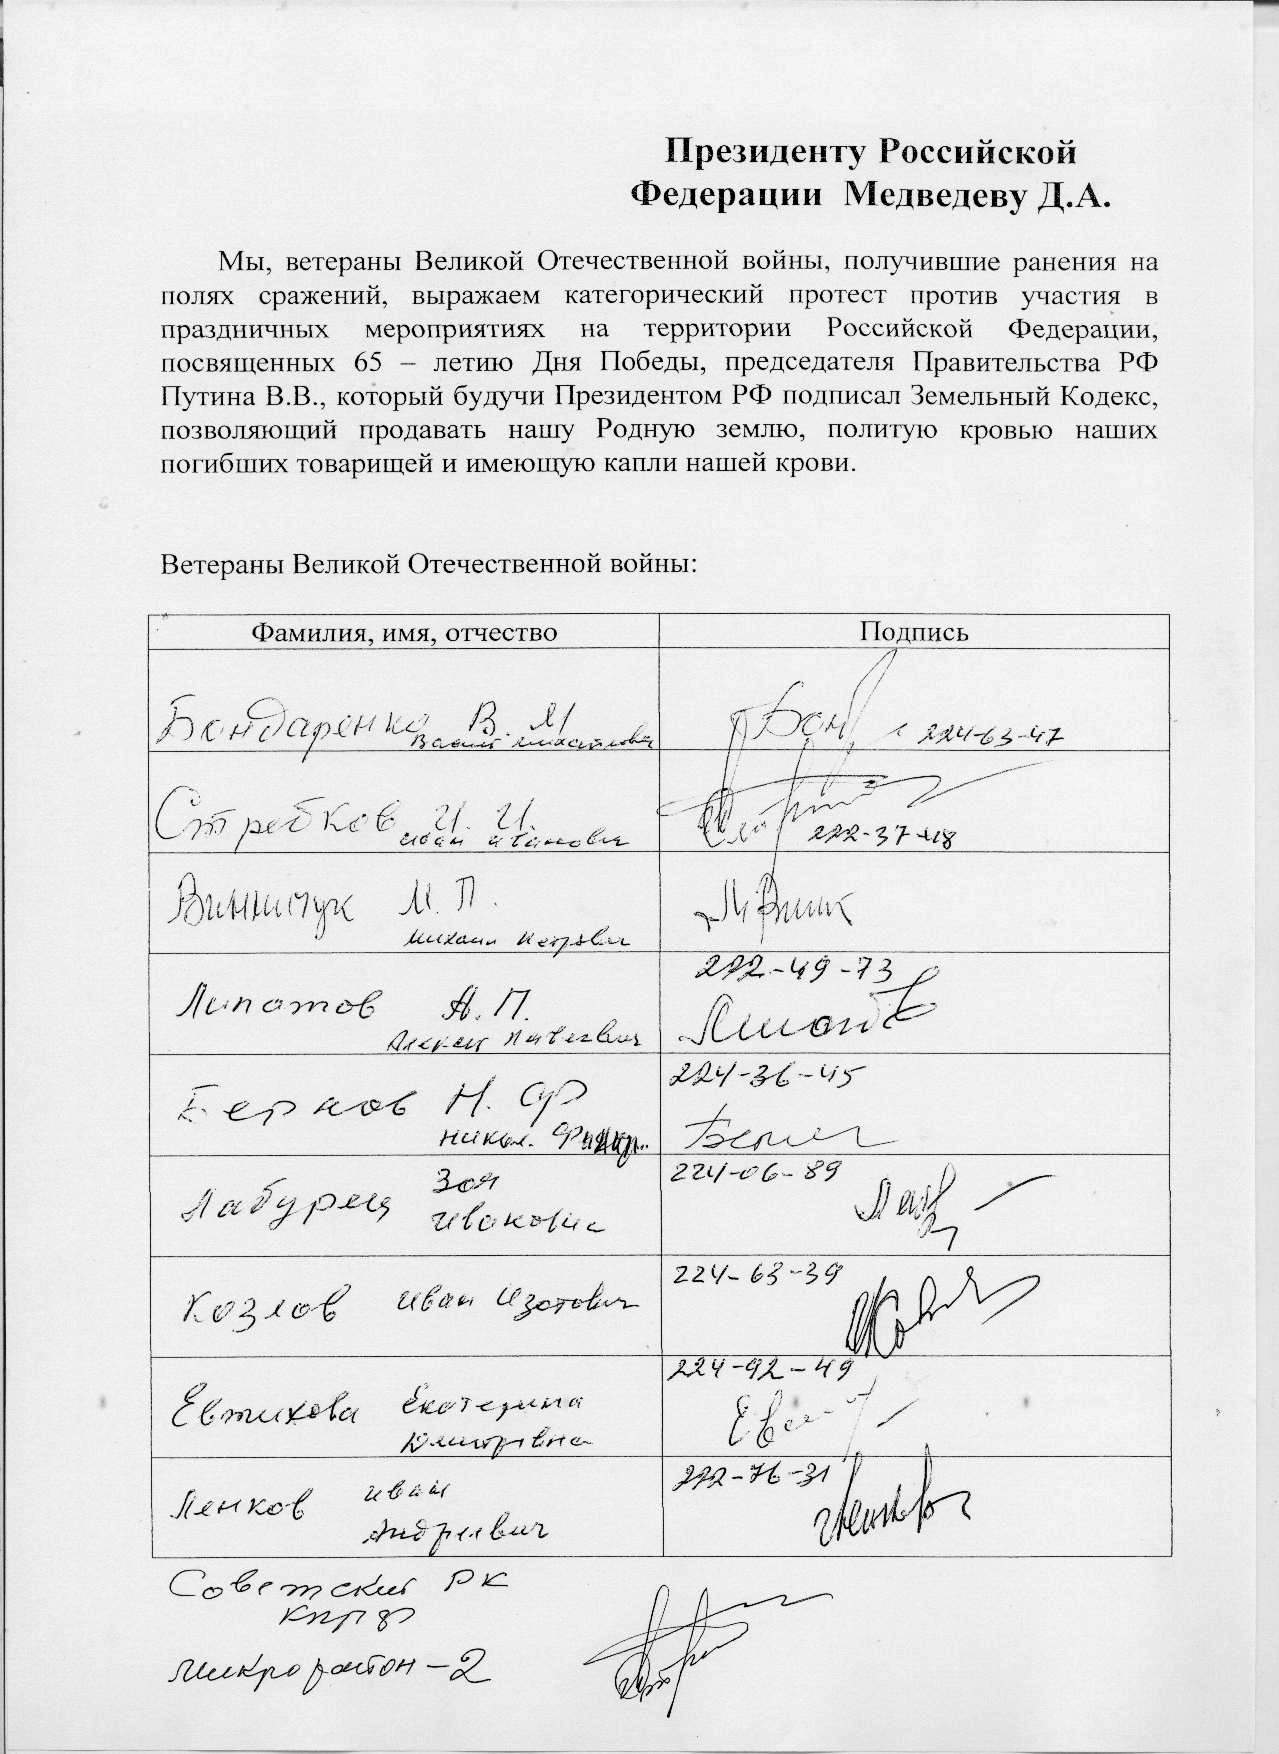 Президенту Российской
Федерации Медведеву Д.А.
Мы, ветераны Великой Отечественной войны, получившие ранения на
полях сражений, выражаем категорический протест против участия в
праздничных мероприятиях на территории Российской Федерации,
посвященных 65 – летию Дня Победы, председателя Правительства РФ
Путина В.В., который будучи Президентом РФ подписал Земельный Кодекс,
позволяющий продавать нашу Родную землю, политую кровью наших
погибших товарищей и имеющую капли нашей крови.
Ветераны Великой Отечественной войны:
Фамилия, имя, отчество Подпись
Бондаренко В. М
224-63-47
Стребков И. И.
Иван Иванович 222-37-48
Винничук М. П.
Михаил Петрович
272-49-73
Липатов А. П.
Алексей Павлович
224-36-45
Бернов Н. Ф
Никол.
224-06-89
Лабурец Зоя
Ивановна
224-63-39
Козлов Иван Изотович
224-92-49
Евтихова Екатерина
Дмитриевна
272-76-31
Ленков Иван
Андреевич
Советский РК
КПРФ
микрорайон-2